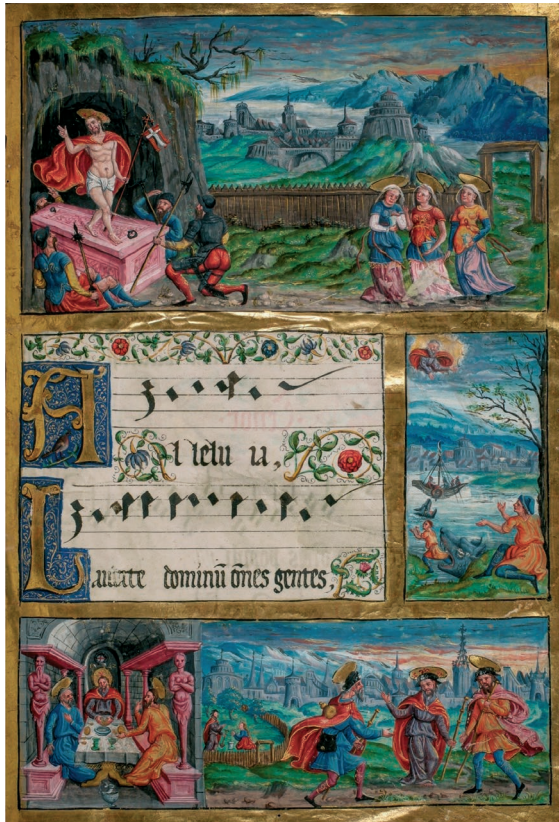 Al lelu ia,
Laudate dominū ōnes gentes,